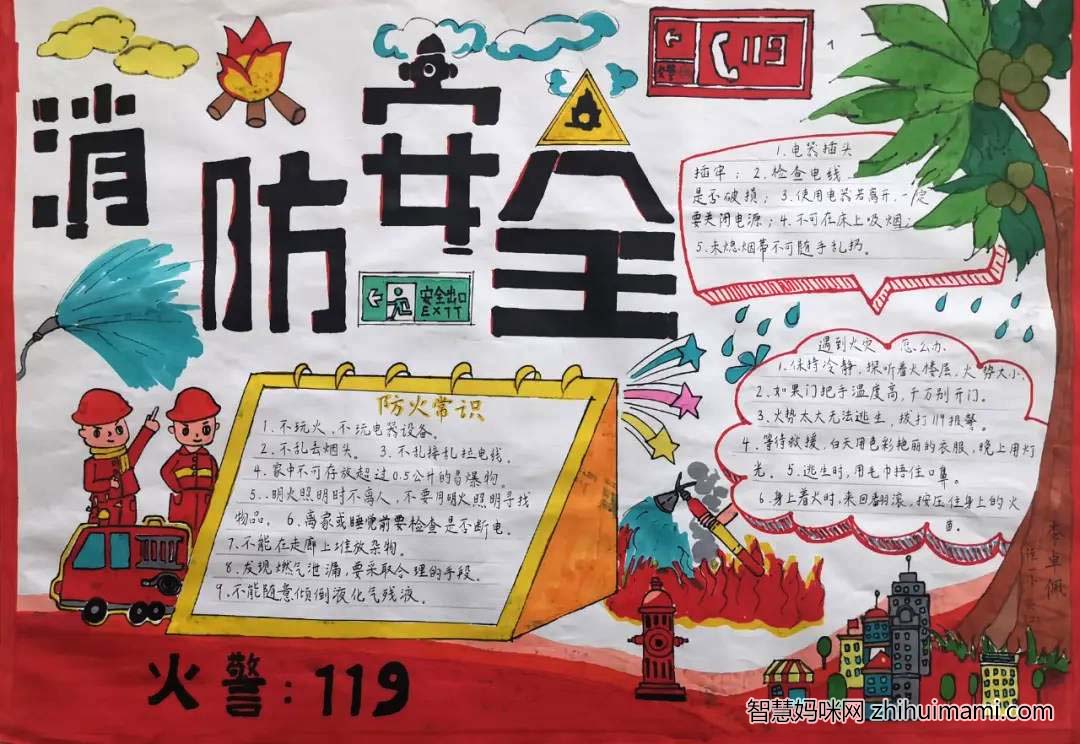 消防安全
119
安全出口
EXIT
1.电器插头
插牢；2.检查电线
是否破损；3.使用电器若离开，一定
要关闭电源；4.不可在床上吸烟；
5.未熄烟蒂不可随手乱扔。
防火常识
1.不玩火，不玩电器设备。
2.不乱丢烟头。 3.不乱接乱拉电线。
4.家中不可存放超过0.5公升的易爆物。
5.明火照明时不离人，不要用明火照明寻找
物品。 6.离家或睡觉前要检查是否断电。
7.不能在走廊上堆放杂物。
8.发现燃气泄漏，要采取合理的手段。
9.不能随意倾倒液化气残液。
遇到火灾 怎么办
1.保持冷静，探听着火楼层，火势大小。
2.如果门把手温度高，千万别开门。
3.火势太大无法逃生，拨打119报警。
4.等待救援，白天用色彩艳丽的衣服，晚上用灯
光。 5.逃生时，用毛巾捂住口鼻。
6.身上着火时，来回翻滚，按压住身上的火
苗。
李卓佩
火警：119
智慧妈咪网 zhihuimami.com